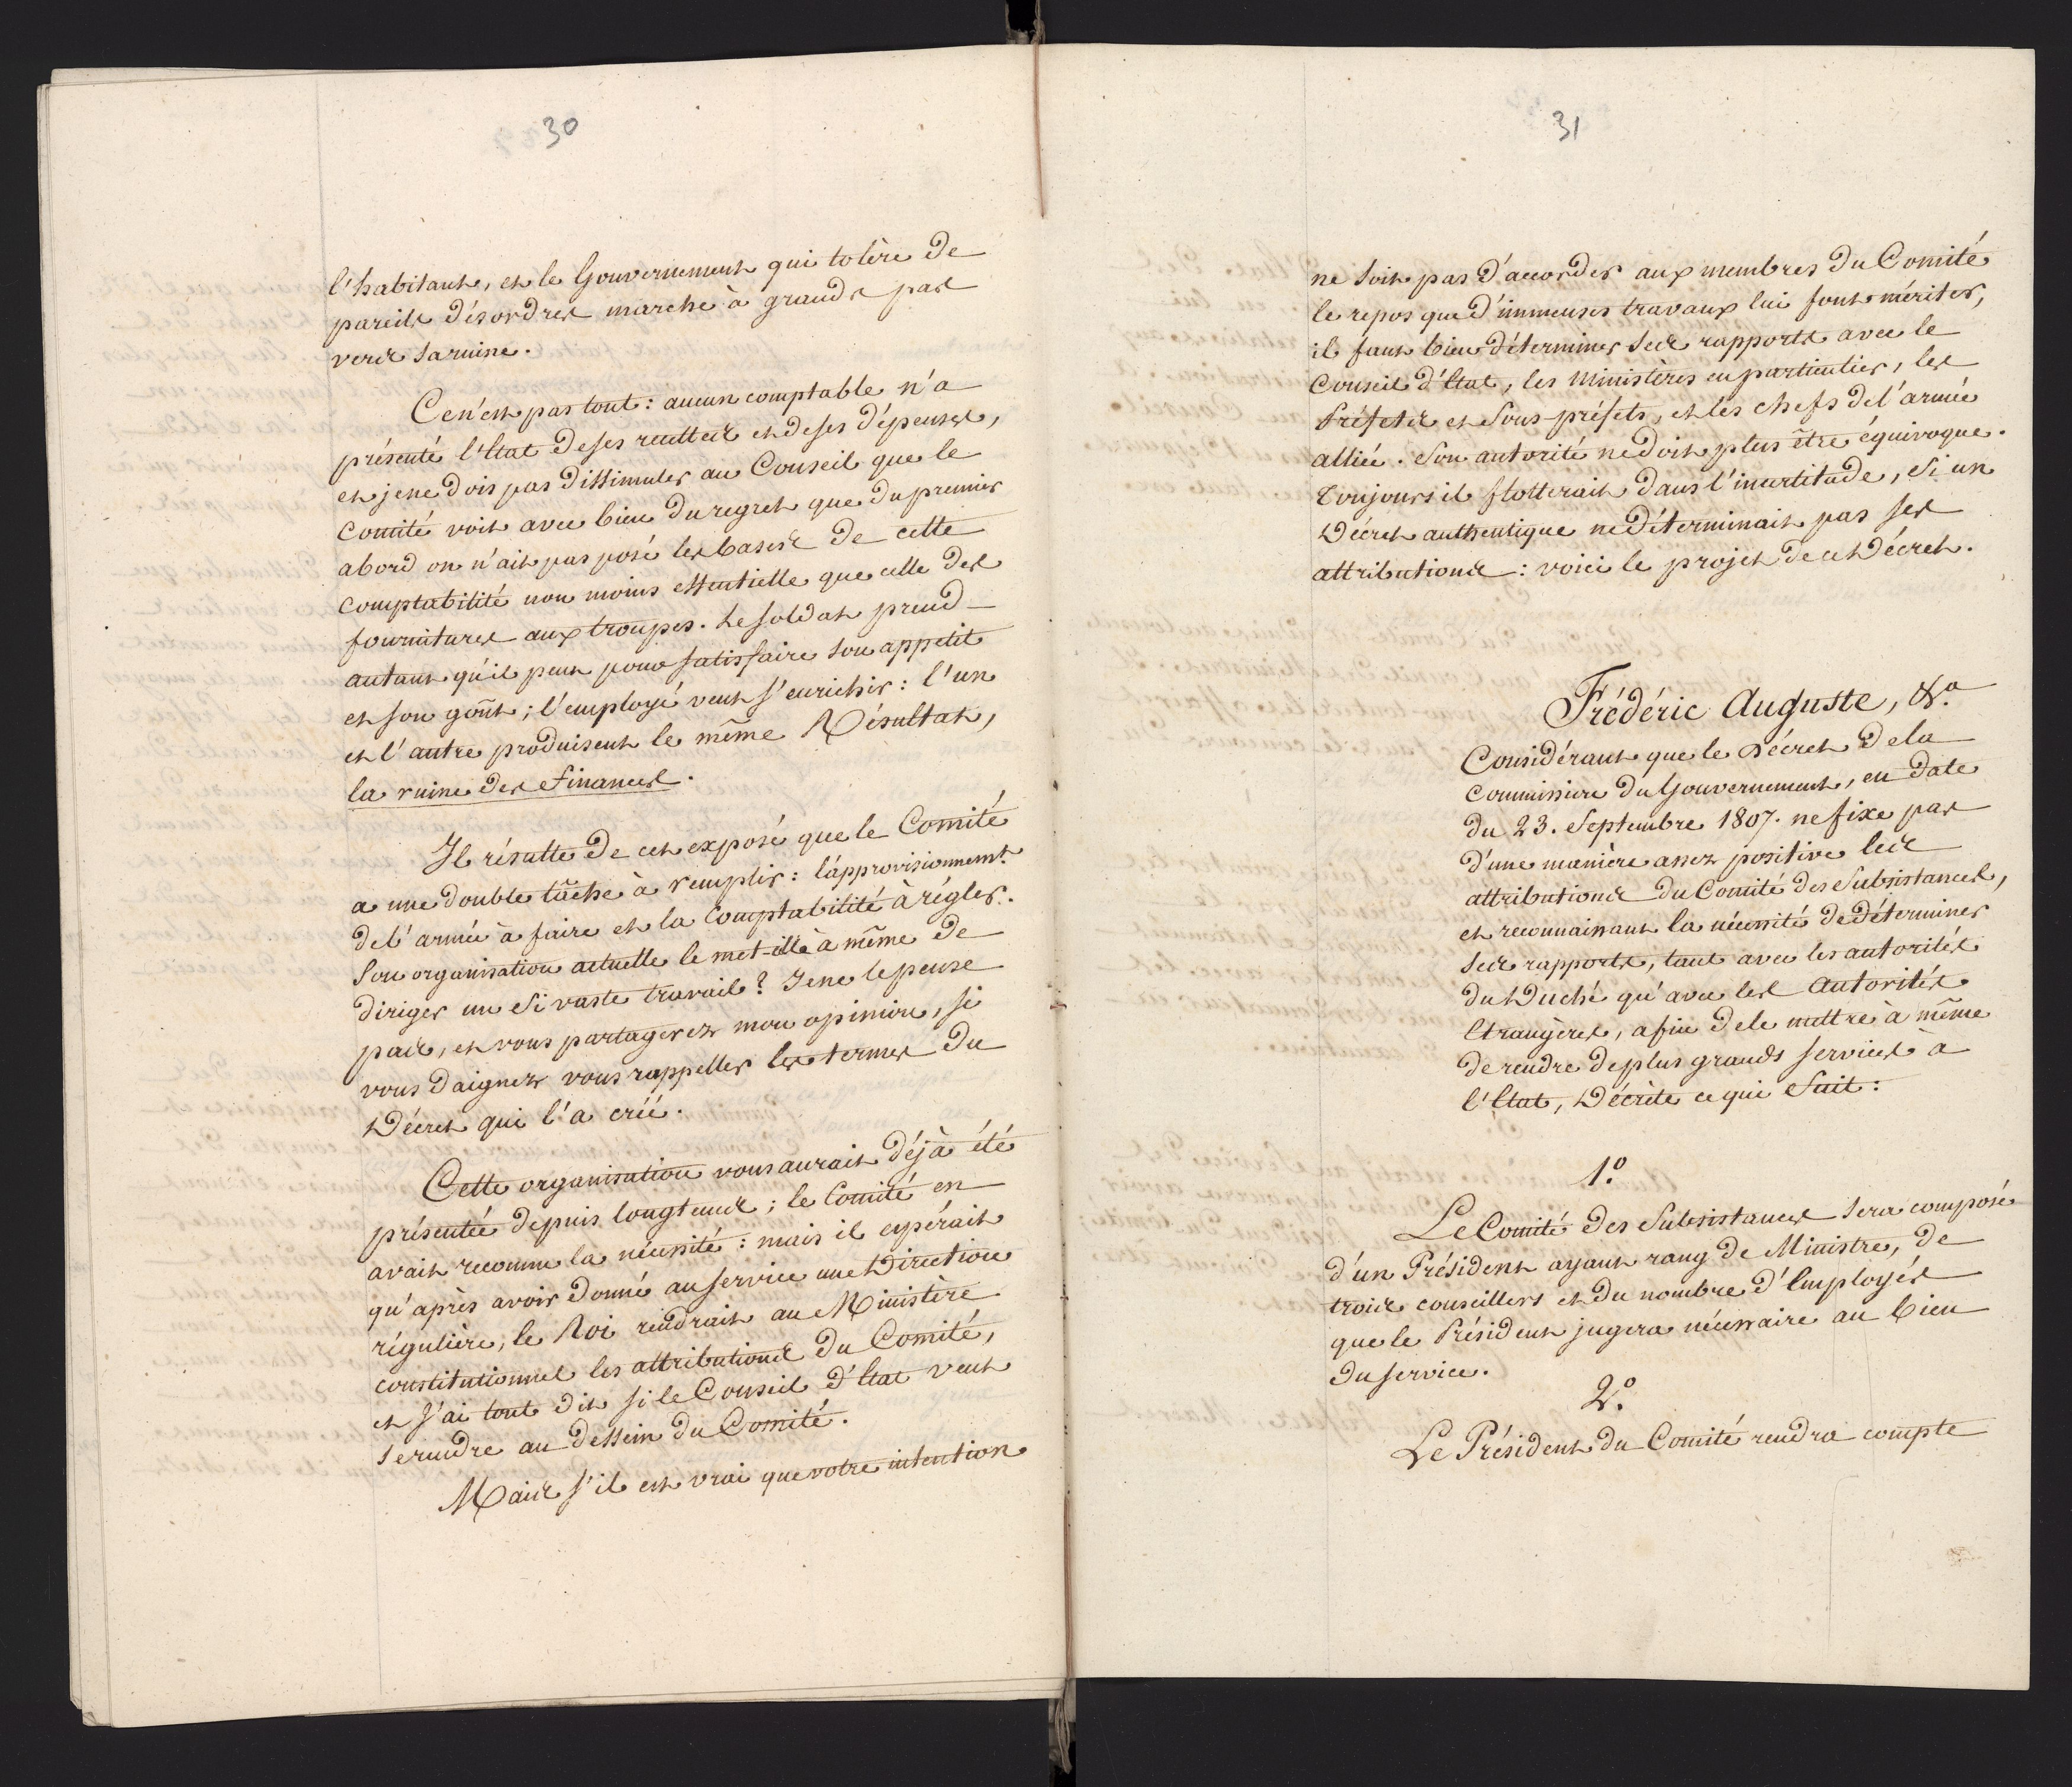 30
l'habitant, et le Gouvernement qui tolère de
pareils désordres marche à grands pas
vers sa ruine.
Ce n'est pas tout : aucun comptable n'a
présenté l'Etat de ses recettes et de ses dépenses,
et je ne dois pas dissimuler au Conseil que le
Comité voit avec bien du regret que du premier
abord on n'ait pas posé les bases de cette
comptabilité non moins essentielle que celle des
fournitures aux troupes. Le soldat prend
autant qu'il peut pour satisfaire son appetit
et son goût ; l'employé veut s'enrichir : l'un
et l'autre produisent le même Résultat,
la ruine des Finances.
Il résulte de cet exposé que le Comité
a une double tâche à remplir : l'approvisionnemt.
de l'armée à faire et la Comptabilité à régler.
Son organisation actuelle le met-elle à même de
diriger un si vaste travail ? Je ne le pense
pas, et vous partagerez mon opinion, si
vous daignez vous rappeller les termes du
Décret qui l'a créé.
Cette organisation vous aurait déjà été
présentée depuis longtems ; le Comité en
avait reconnu la nécessité : mais il espérait
qu'après avoir donné au service une Direction
régulière, le Roi rendrait au Ministère
constitutionnel les attributions du Comité,
et j'ai tout dit si le Conseil d'Etat veut
se rendre au dessein du Comité.
Mais s'il est vrai que votre intention
31
ne soit pas d'accorder aux membres du Comité
le repos que d'immenses travaux lui font mériter,
il faut bien déterminer ses rapports avec le
Conseil d'Etat, les Ministères en particulier, les
Préfets et Sous-préfets, et les chefs de l'armée
alliée. Son autorité ne doit plus être équivoque.
Toujours il flotterait dans l'incertitude, si un
Décret authentique ne déterminait pas ses
attributions : voici le projet de ce Décret.
Frédéric Auguste, &a.
Considérant que le Décret de la
Commission du Gouvernement, en date
du 23. Septembre 1807. ne fixe pas
d'une manière assez positive les
attributions du Comité des Subsistances,
et reconnaissant la nécessité de déterminer
ses rapports, tant avec les autorités
du Duché qu'avec les Autorités
Etrangères, afin de le mettre à même
de rendre de plus grands services à
l'Etat, Décrète ce qui Suit :
1.o
Le Comité des Subsistances sera composé
d'un Président ayant rang de Ministre, de
trois conseillers et du nombre d'Employés
que le Président jugera nécessaire au bien
du service.
2.o
Le Président du Comité rendra compte